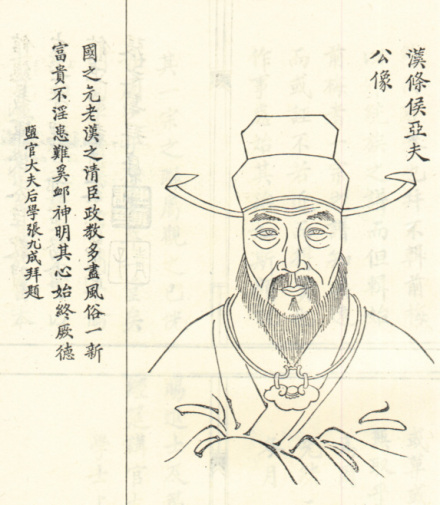 漢條侯亞夫
公像
國之元老漢之清臣政教多盡風俗一新
富貴不淫患難奚卹神明其心始終厥德
盬官大夫后學張九成拜題